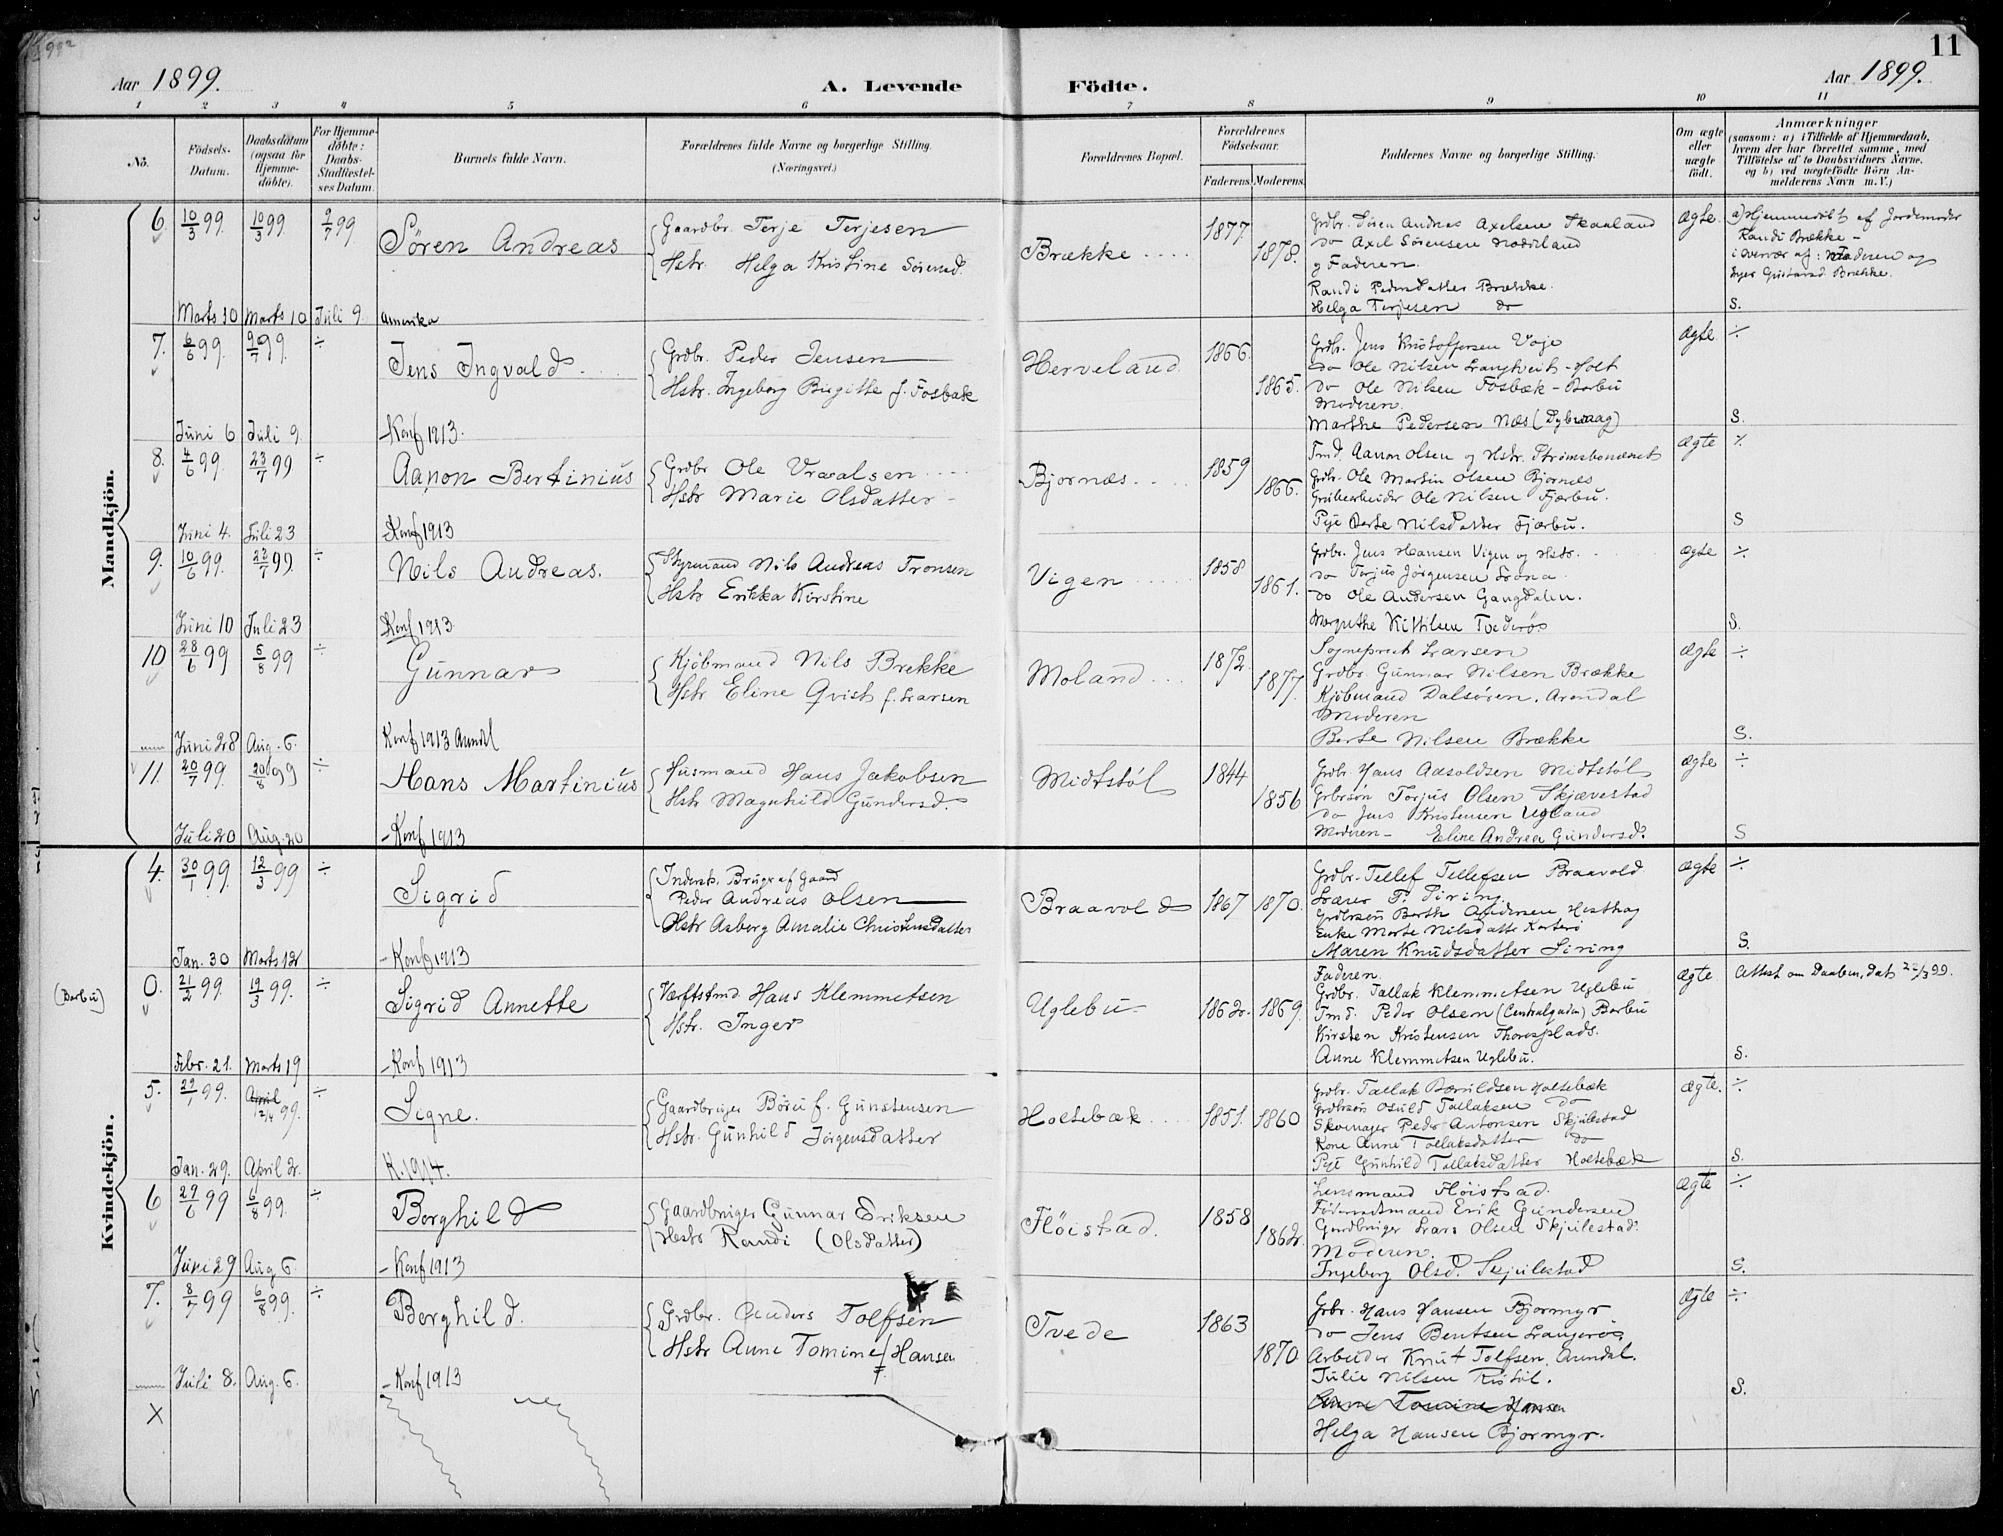 Aar 1899.
A. Levende Födte.
Aar 1899.
11
1 2 3 4 5 6 7 8 9 10 11
No.
Födsels-Datum.
Daabsdatum (ogsaa for Hjemme-döbte).
For Hjemme-döbte: Daabs-Stadfæstel-ses Datum.
Barnets fulde Navn.
Forældrenes fulde Navne og borgerlige Stilling. (Næringsvei.)
Forældrenes Bopæl.
Forældrenes Födselsaar.
Faderens. Moderens.
Faddernes Navne og borgerlige Stilling.
Om ægte eller uægte födt.
Anmærkninger
(saasom: a) i Tilfælde af Hjemmedaab, hvem der har forrettet samme, med Tilföielse af to Daabsvidners Navne, og b) ved uegtefödte Börn An-melderens Navn m. V.)
Mandkjön.
6. 10/3 99 10/3 99 9/7 99
Sören Andreas
Gaardbr. Terje Terjesen
Hstr. Helga Kristine Sörensd.
Brække
1877. 1878.
Grdbr. Sören Andreas Axelsen Skaaland
do Axel Sörensen Nordland
og Faderen.
Randi Pedersdatter Brække.
Helga Terjesen do
ægte.
a) Hjemmedöbt af Jordemoder
Randi Brække -
i overvær af: Moderen og
Inger Gustavsd. Brække.
S.
Marts 10 Marts 10 Juli 9. Amerika
7. 6/6 99. 9/7 99. ÷
Jens Ingvald.
Grdbr. Peder Jensen
Hstr. Ingeborg Birgitte f. Fosbæk
Herveland.
1866. 1865.
Grdbr. Jens Kristoffersen Voje
do Ole Nilsen Langtveit - Holt
do Ole Nilsen Fosbæk - Barbu
Moderen.
Marthe Pedersen Næs (Dybvaag)
ægte ÷
S.
Juni 6 Juli 9. - Konf 1913.
8. 4/6 99. 23/7 99 ÷
Aanon Bertinius
Grdbr Ole Vraalsen
Hstr Marie Olsdatter -
Bjornæs
1859 1866.
Tmd. Aanon Olsen og Hstr. Strömsbonæset
Grdbr. Ole Martin Olsen Bjornæs
Grubearbeider Ole Nilsen Fjærbu.
Pige Berte Nilsdatter Fjærbu.
ægte
S
Juni 4. Juli 23 Konf 1913
9. 10/6 99. 23/7 99. ÷
Nils Andreas.
Styrmand Nils Andreas Tronsen
Hstr Erikka Kirstine
Vigen
1858 1861.
Grdbr. Jens Hansen Vigen og Hstr.
do Terjus Jörgensen Lona.
do Ole Andersen Gangdalen.
Margrethe Kittilsen Tvederös
ægte ÷
S.
Juni 10 Juli 23 Konf 1913
10 28/6 99 6/8 99 ÷
Gunnar
Kjöbmand Nils Brekke
Hstr Eline Qvist f. Larsen
Moland
1872. 1877.
Sogneprest Larsen
Grdbr Gunnar Nilsen Brække
Kjöbmand Dalsören. Arendal
Moderen
Berte Nilsen Brække
ægte ÷
S.
Juni 28 Aug. 6. Konf 1913 Arendl
11. 20/7 99. 20/8 99 ÷
Hans Martinius
Husmand Hans Jakobsen
Hstr Magnhild Gundersd.
Midtstöl
1844 1856
Grdbr Hans Aasoldsen Midtstöl
Grbrsön Torjus Olsen Skjævestad
do Jens Kristensen Ugland
Moderen - Eline Andrea Gundersd.
ægte ÷
S
Juli 20 Aug. 20 - Konf 1913
Kvindekjön.
4. 30/1 99. 12/3 99 ÷
Sigrid
Indersk. Bruger af Gaard
Peder Andreas Olsen
Hstr Asborg Amalie Christensdatter
Braavold
1867 1870.
Grdbr. Tellef Tellefsen Braavold
Lærer P. Siring.
Grdbrsön Berth Andersen Hesthag
Enke Marte Nilsdatter
Maren Knudsdatter Siring
ægte ÷
S.
Jan. 30 Marts 12 - Konf 1913
(Barbu) 0. 21/2 99. 19/3 99. ÷
Sigrid Annette
Værftstmd Hans Klemmetsen
Hstr. Inger
Uglebu
1862. 1869.
Faderen.
Grdbr. Tallak Klemmetsen Uglebu
Tmd. Peder Olsen (Centralgaden) Barbu
Kirsten Kristensen Thoresplads.
Anne Klemmetsen Uglebu.
ægte
Attest om Daaben, dat. 22/3 99.
S.
Febr. 21. Marts 19 - Konf 1913
5. 29/1 99. April 2/4 99. ÷
Signe.
Gaardbruger Böru f. Gunstensen
Hstr. Gunhild Jörgensdatter
Holtebæk
1851. 1860
Grdbr. Tallak Bærulldsen Holtebæk
Grdbrsön Osuld Tallaksen do
Skomager Peder Antonsen Skjulestad
Kone Anne Tallaksdatter do
Pige Gunhild Tallaksdatter Holtebæk
ægte. ÷
S.
Jan. 29. April 2. K. 1914.
6 29/6 99 6/8 99. ÷
Borghild
Gaardbruger Gunnar Eriksen
Hstr Randi (Olsdatter)
Flöistad.
1858 1862.
Lensmand Flöistad.
Föderaadsmand Erik Gundersen
Gardbruger Lars Olsen Skjulestad.
Moderen.
Ingeborg Olsd. Skjulestad
ægte ÷
S.
Juni 29 Aug 6. - Konf 1913
7. 8/7 99 6/8 99. ÷
Borghild.
Grdbr. Anders Tolfsen
Hstr Anne Tomine Hansen
Tvede
1863 1870
Grbr. Hans Hansen Bjormyr
do Jens Bentsen Langerös
Arbeider Knut Tolfsen. Arendal.
Julie Nilsen Ristöl.
Anne Tomine Hansen
Helga Hansen Bjormyr.
ægte ÷
S.
Juli 8. Aug. 6. - Konf 1913
X